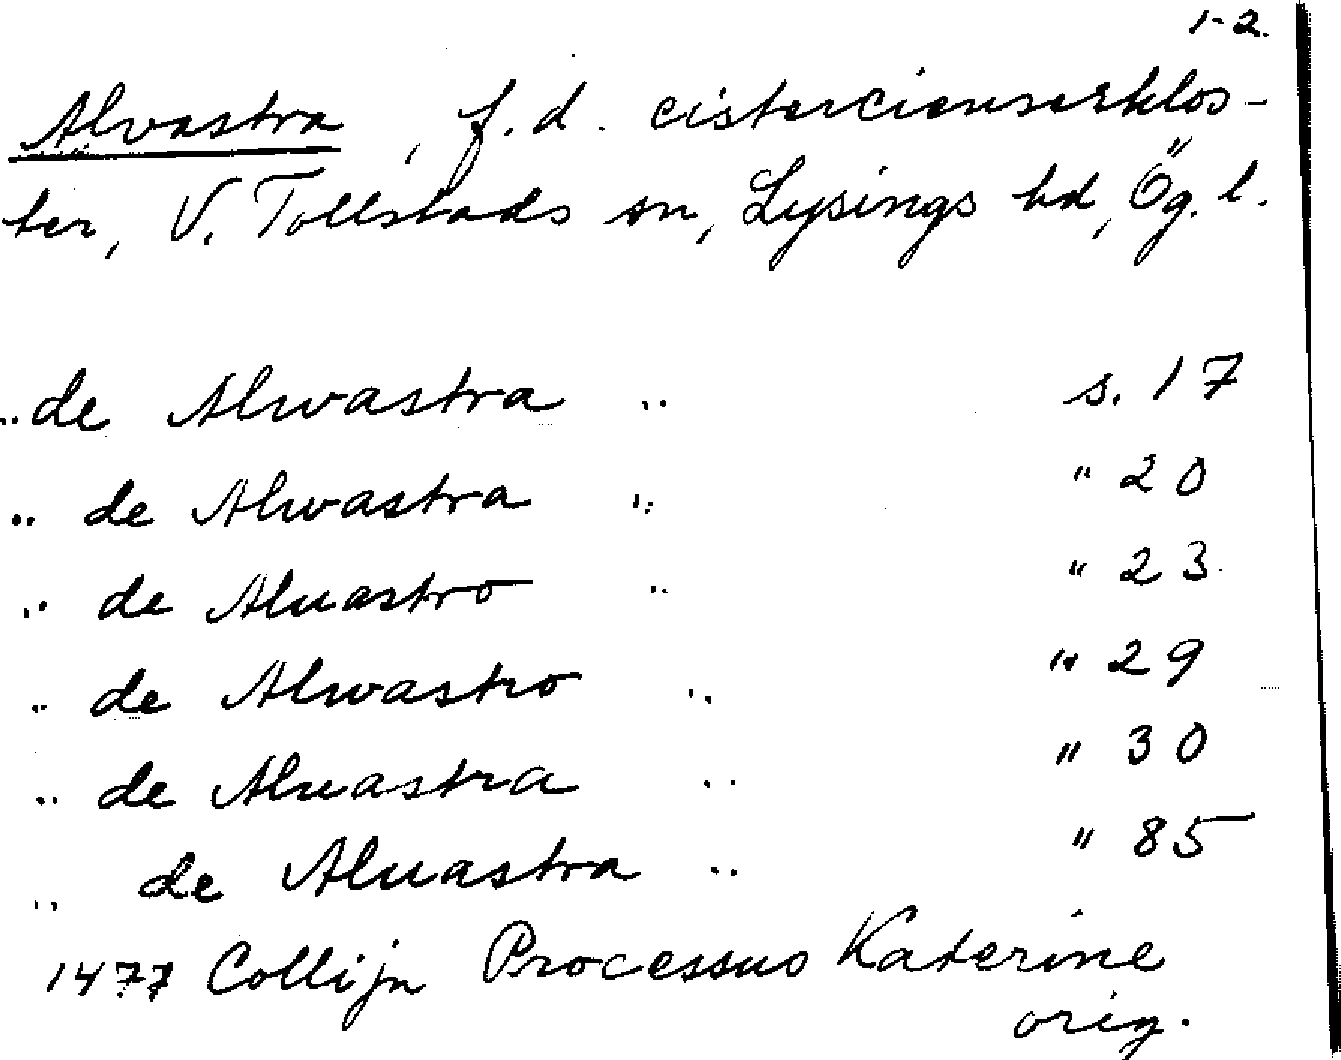 1-2.
Alvastra, f.d. cistercienserklos-
ter, V. Tollstads sn, Lysings hd, Ög. l.
.. de Alwastra .. s. 17
.. de Alwastra .. " 20
.. de Aluastro .. " 23
.. de Alwastro .. " 29
.. de Aluastra .. " 30
.. de Aluastra .. " 85
1477 Collijn Processus Katerine
orig.